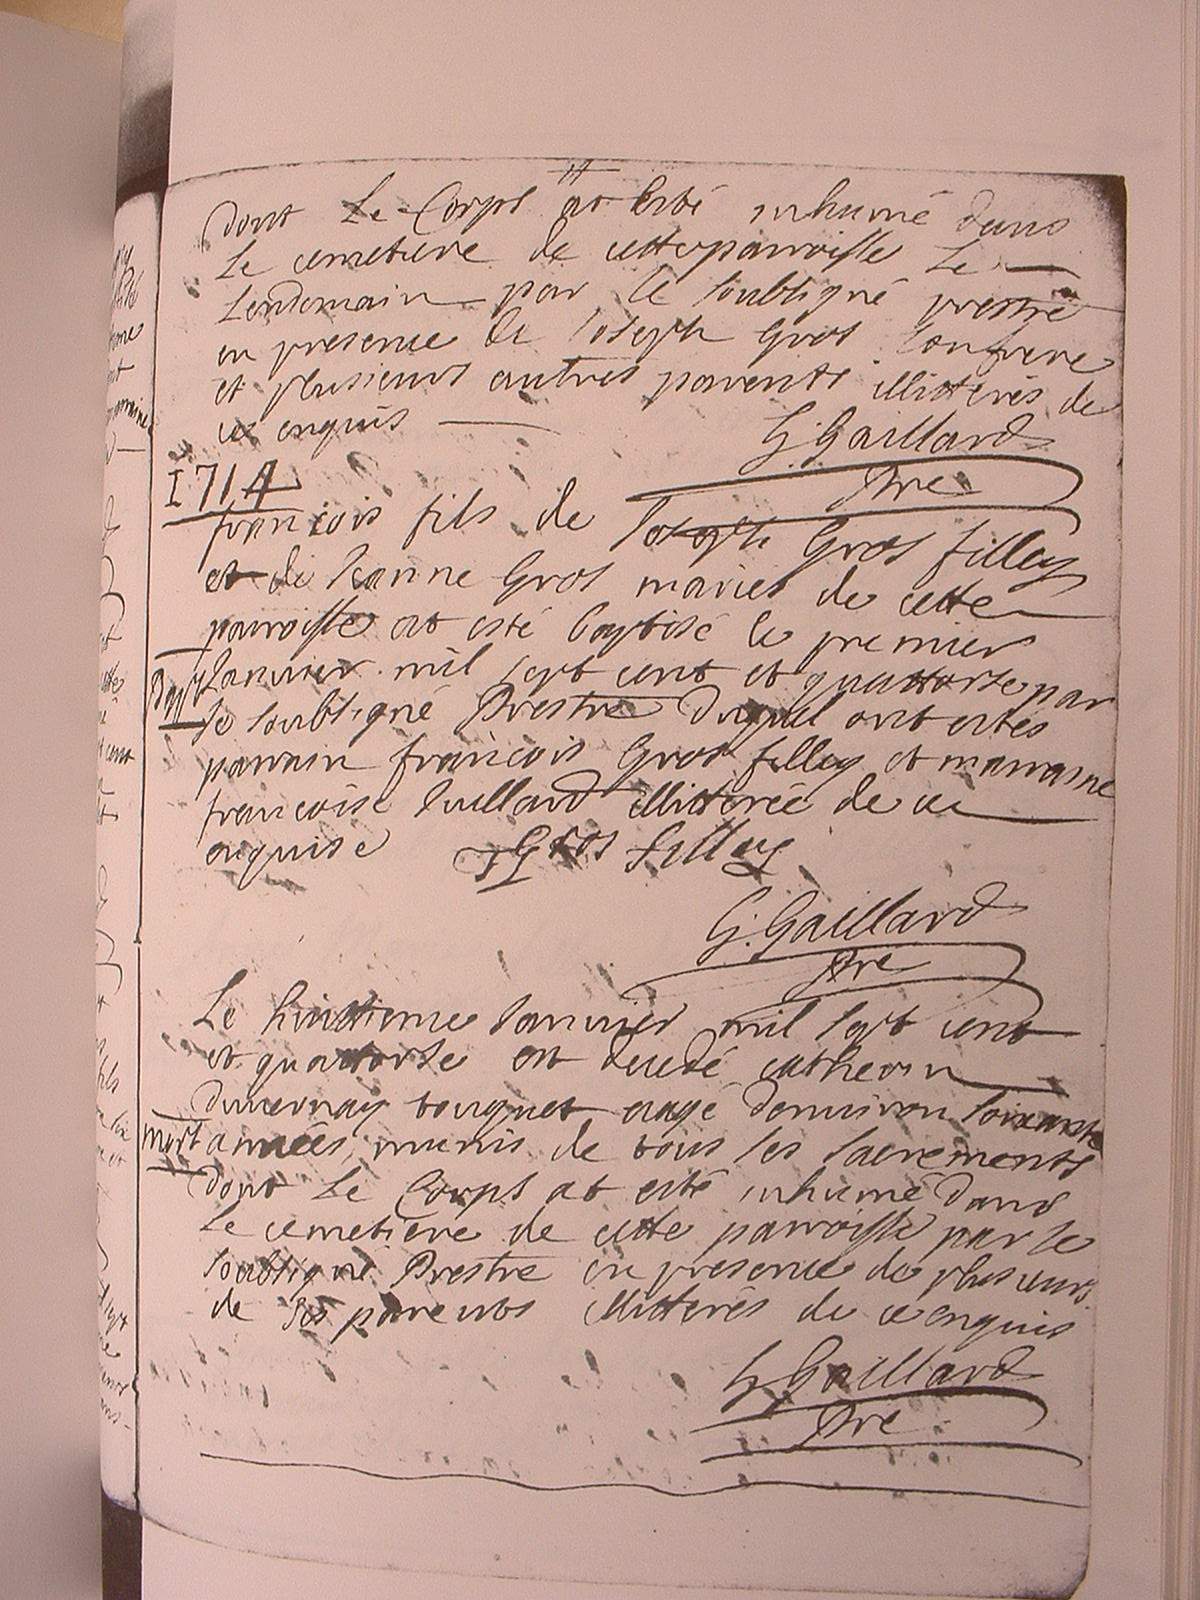 dont Le Corps at Esté inhumé dans
Le cemetiere de cette parroisse Le
Lendemain par le soubsigné prestre
en presence de Joseph Gros son frere
et plusieurs autres parents illitterés de
ce enquis
G. Gaillard
Pre
1714
francois fils de Joseph Gros filley
et de Jeanne Gros mariés de cette
parroisse at esté baptisé le premier
Bapt. Janvier mil sept cent et quattorse par
Le soubsigné Prestre Duquel ont estés
parrain francois Gros filley et marraine
francoise Juillard illitterée de ce
enquise
f Gros filley
G. Gaillard
Pre
Le huictieme Janvier mil sept cent
et quattorse est decedé catherin
duvernay touquet eagé denviron soixante
mort années munis de tous les sacrements
dont Le Corps at esté inhumé dans
Le cemetiere de cette parroisse par le
soubsigné Prestre en presence de plusieurs
de ses parents illitterés de ce enquis
G Gaillard
Pre